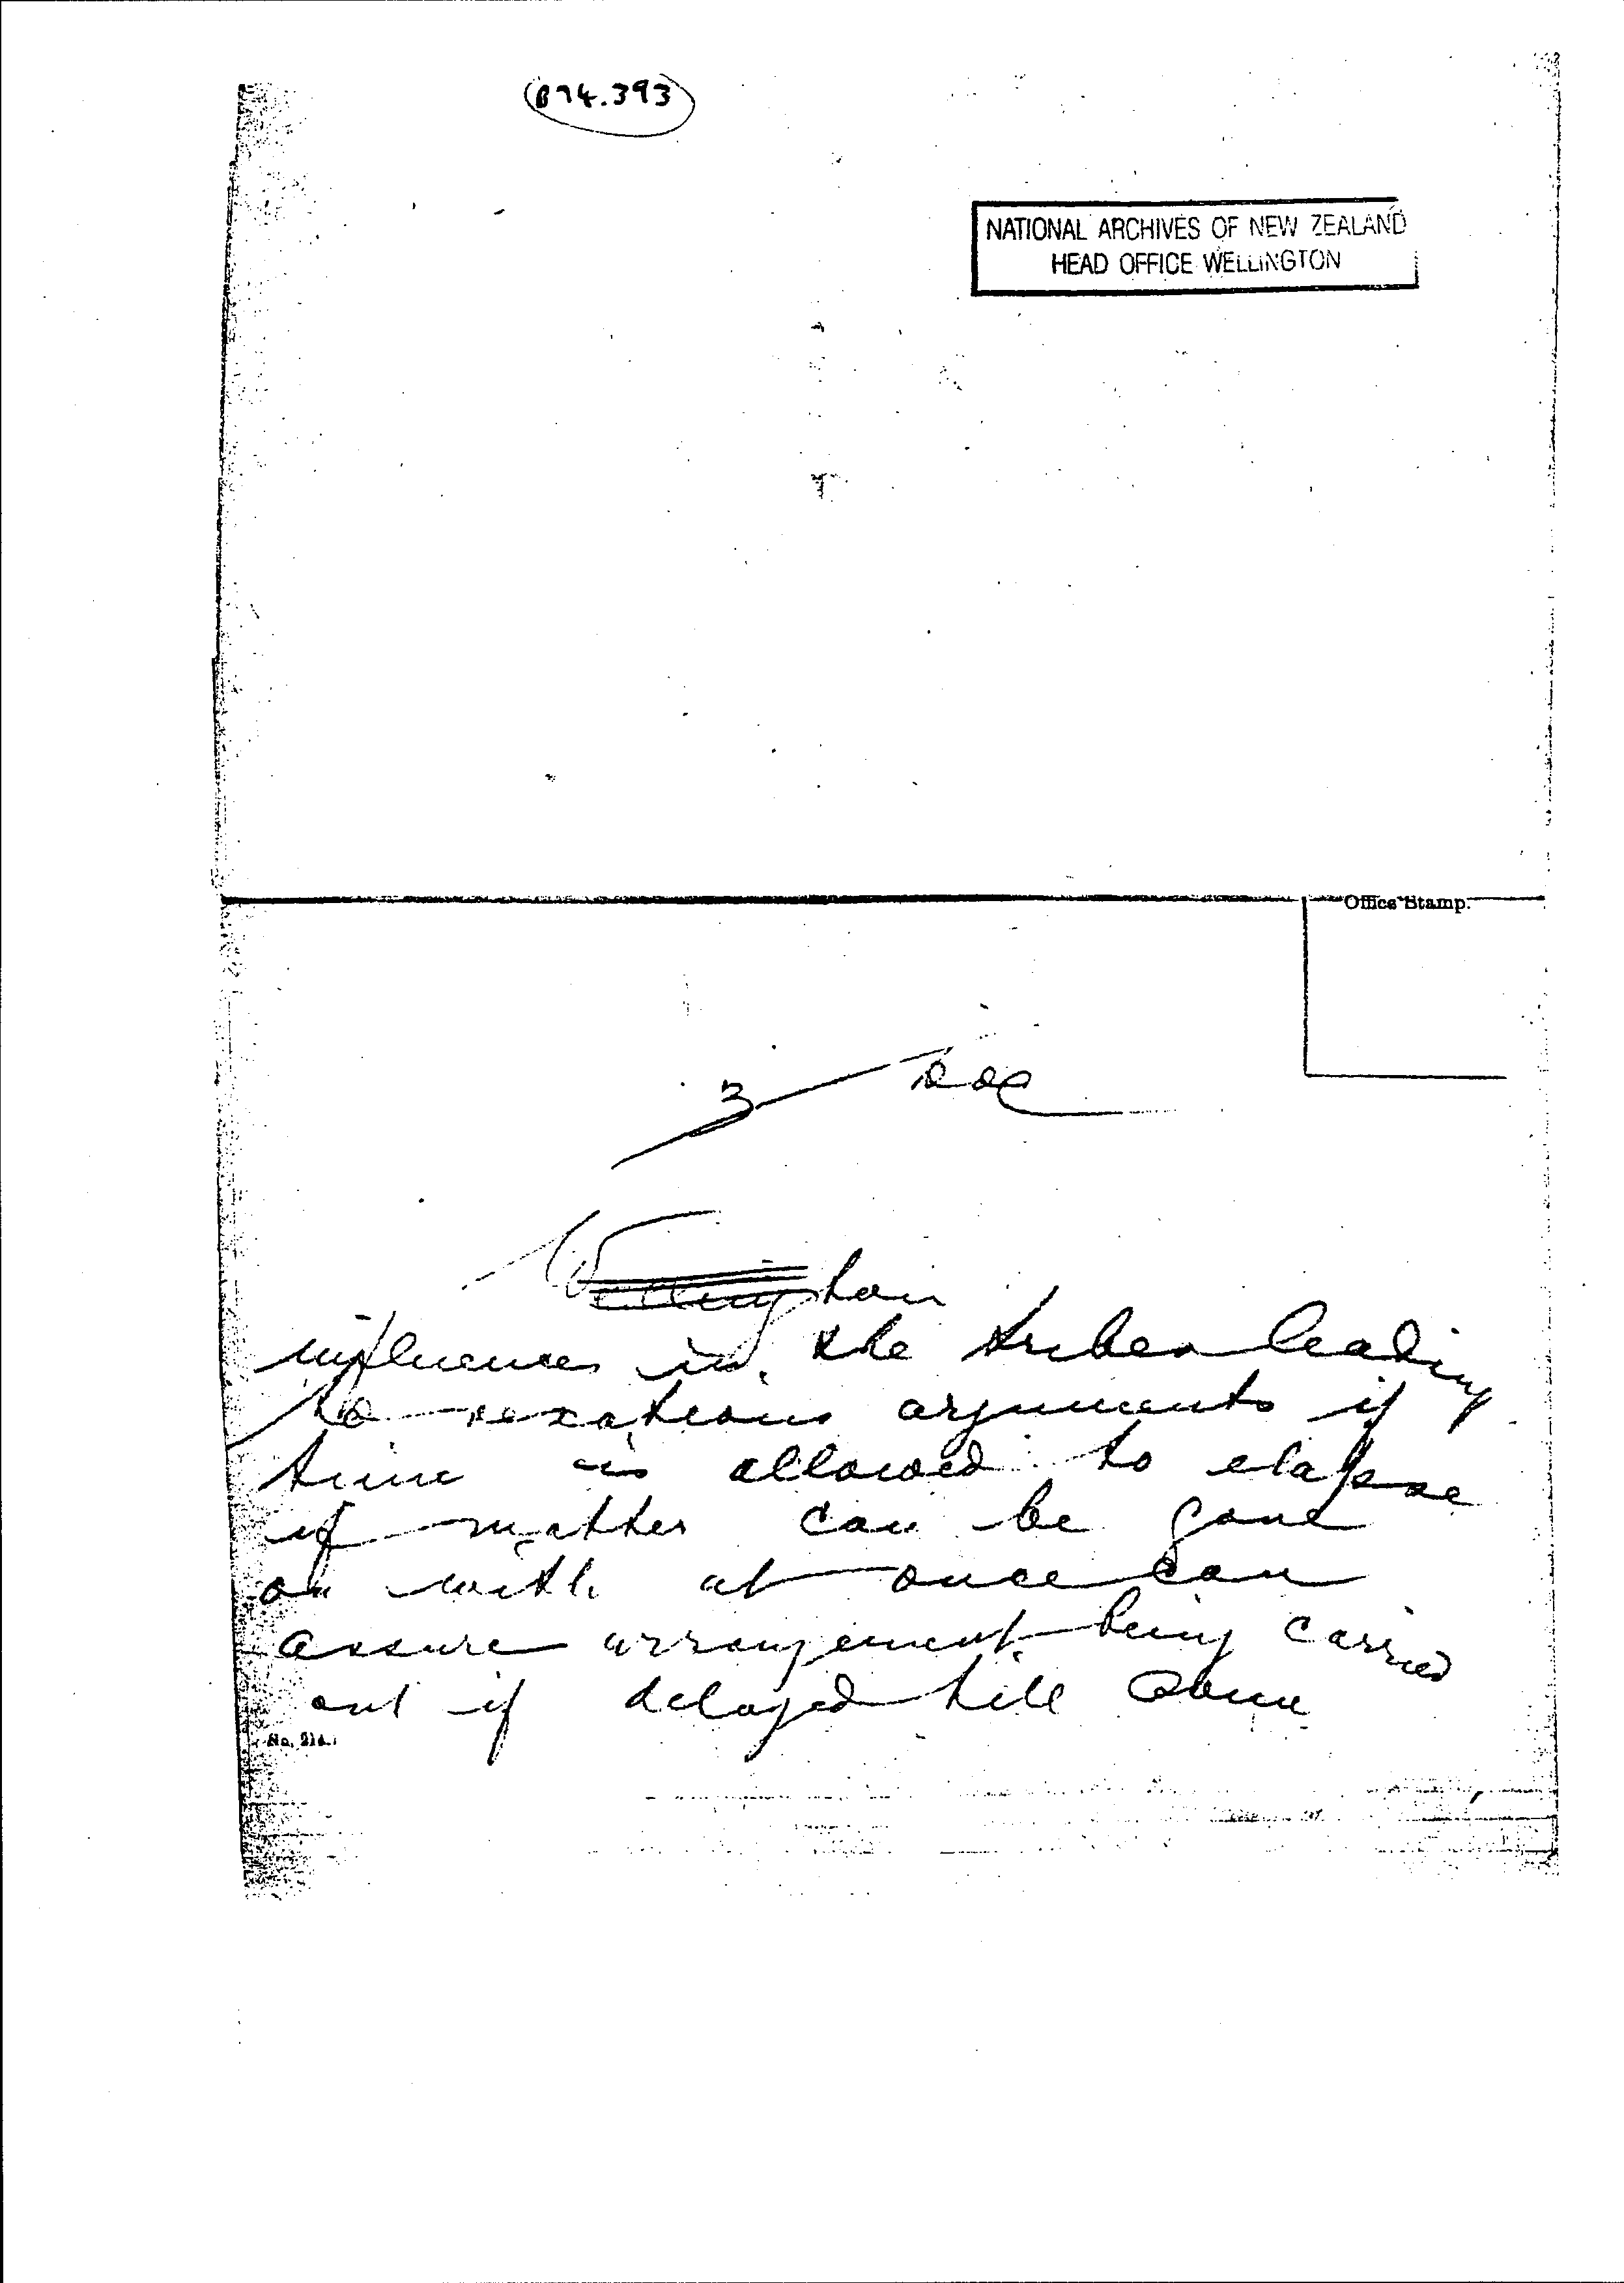 B74.393
NATIONAL ARCHIVES OF NEW ZEALAND
HEAD OFFICE WELLINGTON
Office Stamp.
3
Wellington
influences in the tribes leading
to vexatious arguments if
time is allowed to elapse
if matter can be gone
on with at once can
assure arrangement being carried
out if delayed till
No. 214.